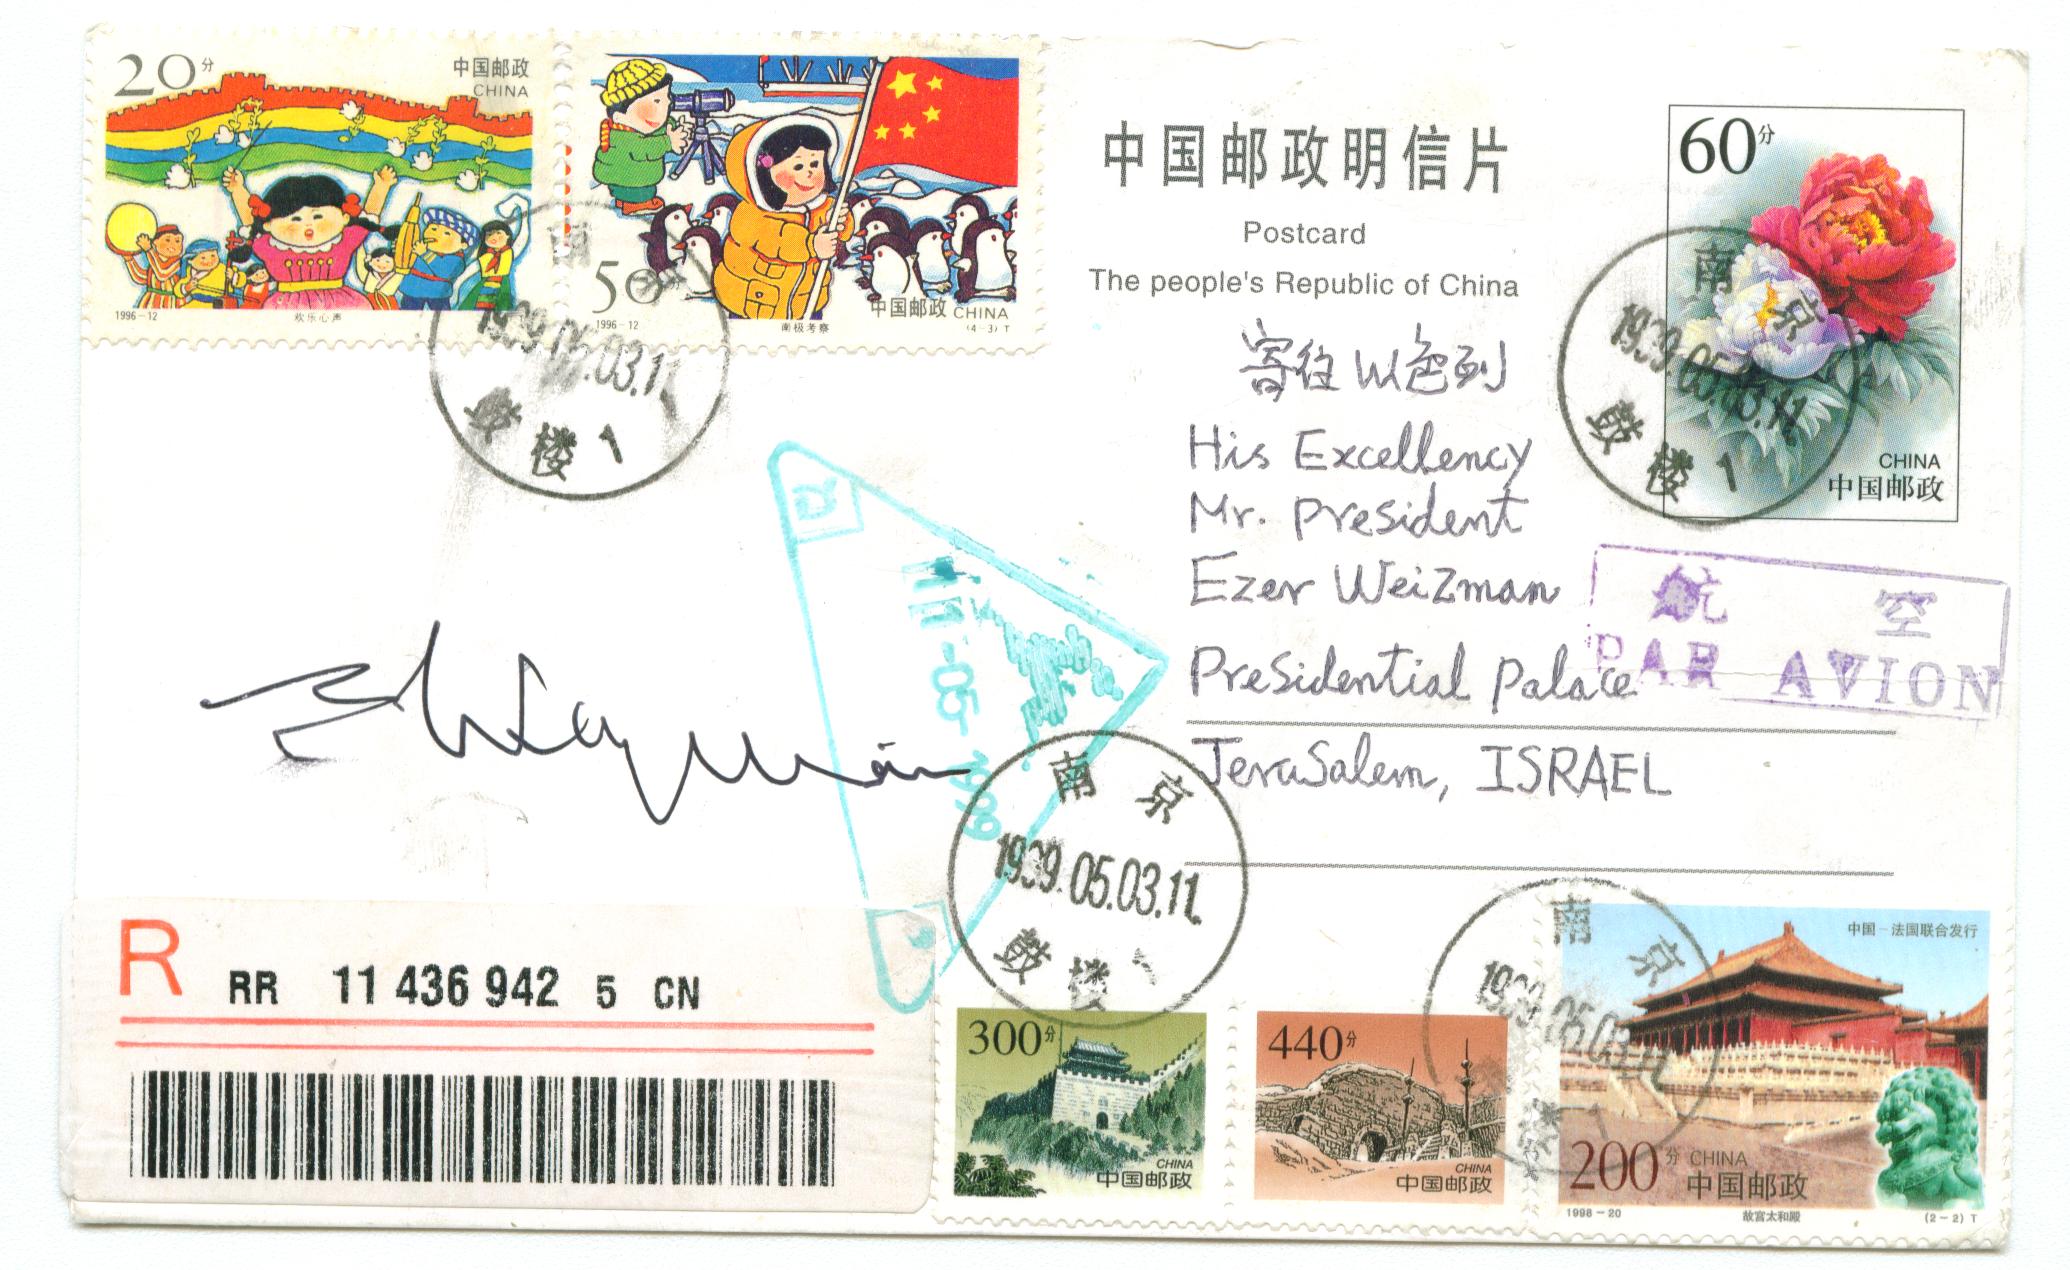 20分
中国邮政
CHINA
1996-12
欢乐心声
50分
1996-12
南极考察
中国邮政 CHINA
(4-3) T
中国邮政明信片
Postcard
The people's Republic of China
60分
CHINA
中国邮政
南京
1999.05.03.11
鼓楼1
寄往以色列
His Excellency
Mr. President
Ezer Weizman
Presidential Palace
Jerusalem, ISRAEL
航 空
PAR AVION
-05-1999
南京
1999.05.03.11
鼓楼1
南
1999.05.03.11
鼓楼1
R
RR 11 436 942 5 CN
300分
CHINA
中国邮政
440分
CHINA
中国邮政
南京
1999.05.03.11
楼1
中国-法国联合发行
200分 CHINA
中国邮政
1998-20
故宫太和殿
(2-2) T